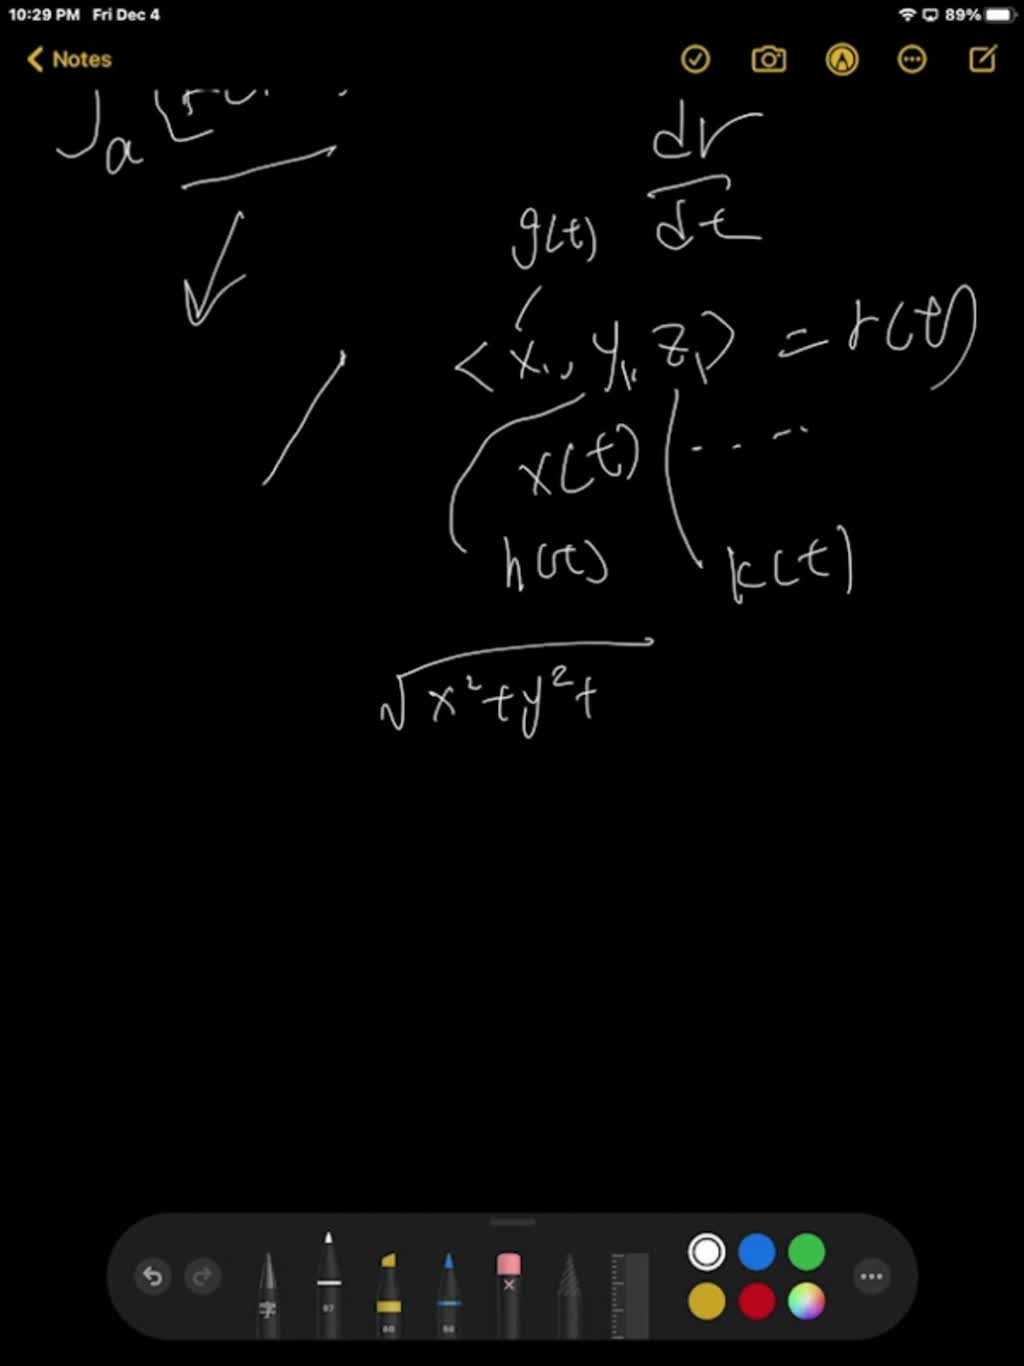 10:29 PM Fri Dec 4 89%
Notes
∫a
dr
dt
g(t)
<x₁, y₁, z₁> = r(t)
x(t) ....
h(t) k(t)
√x²+y²+
字 97 80 50